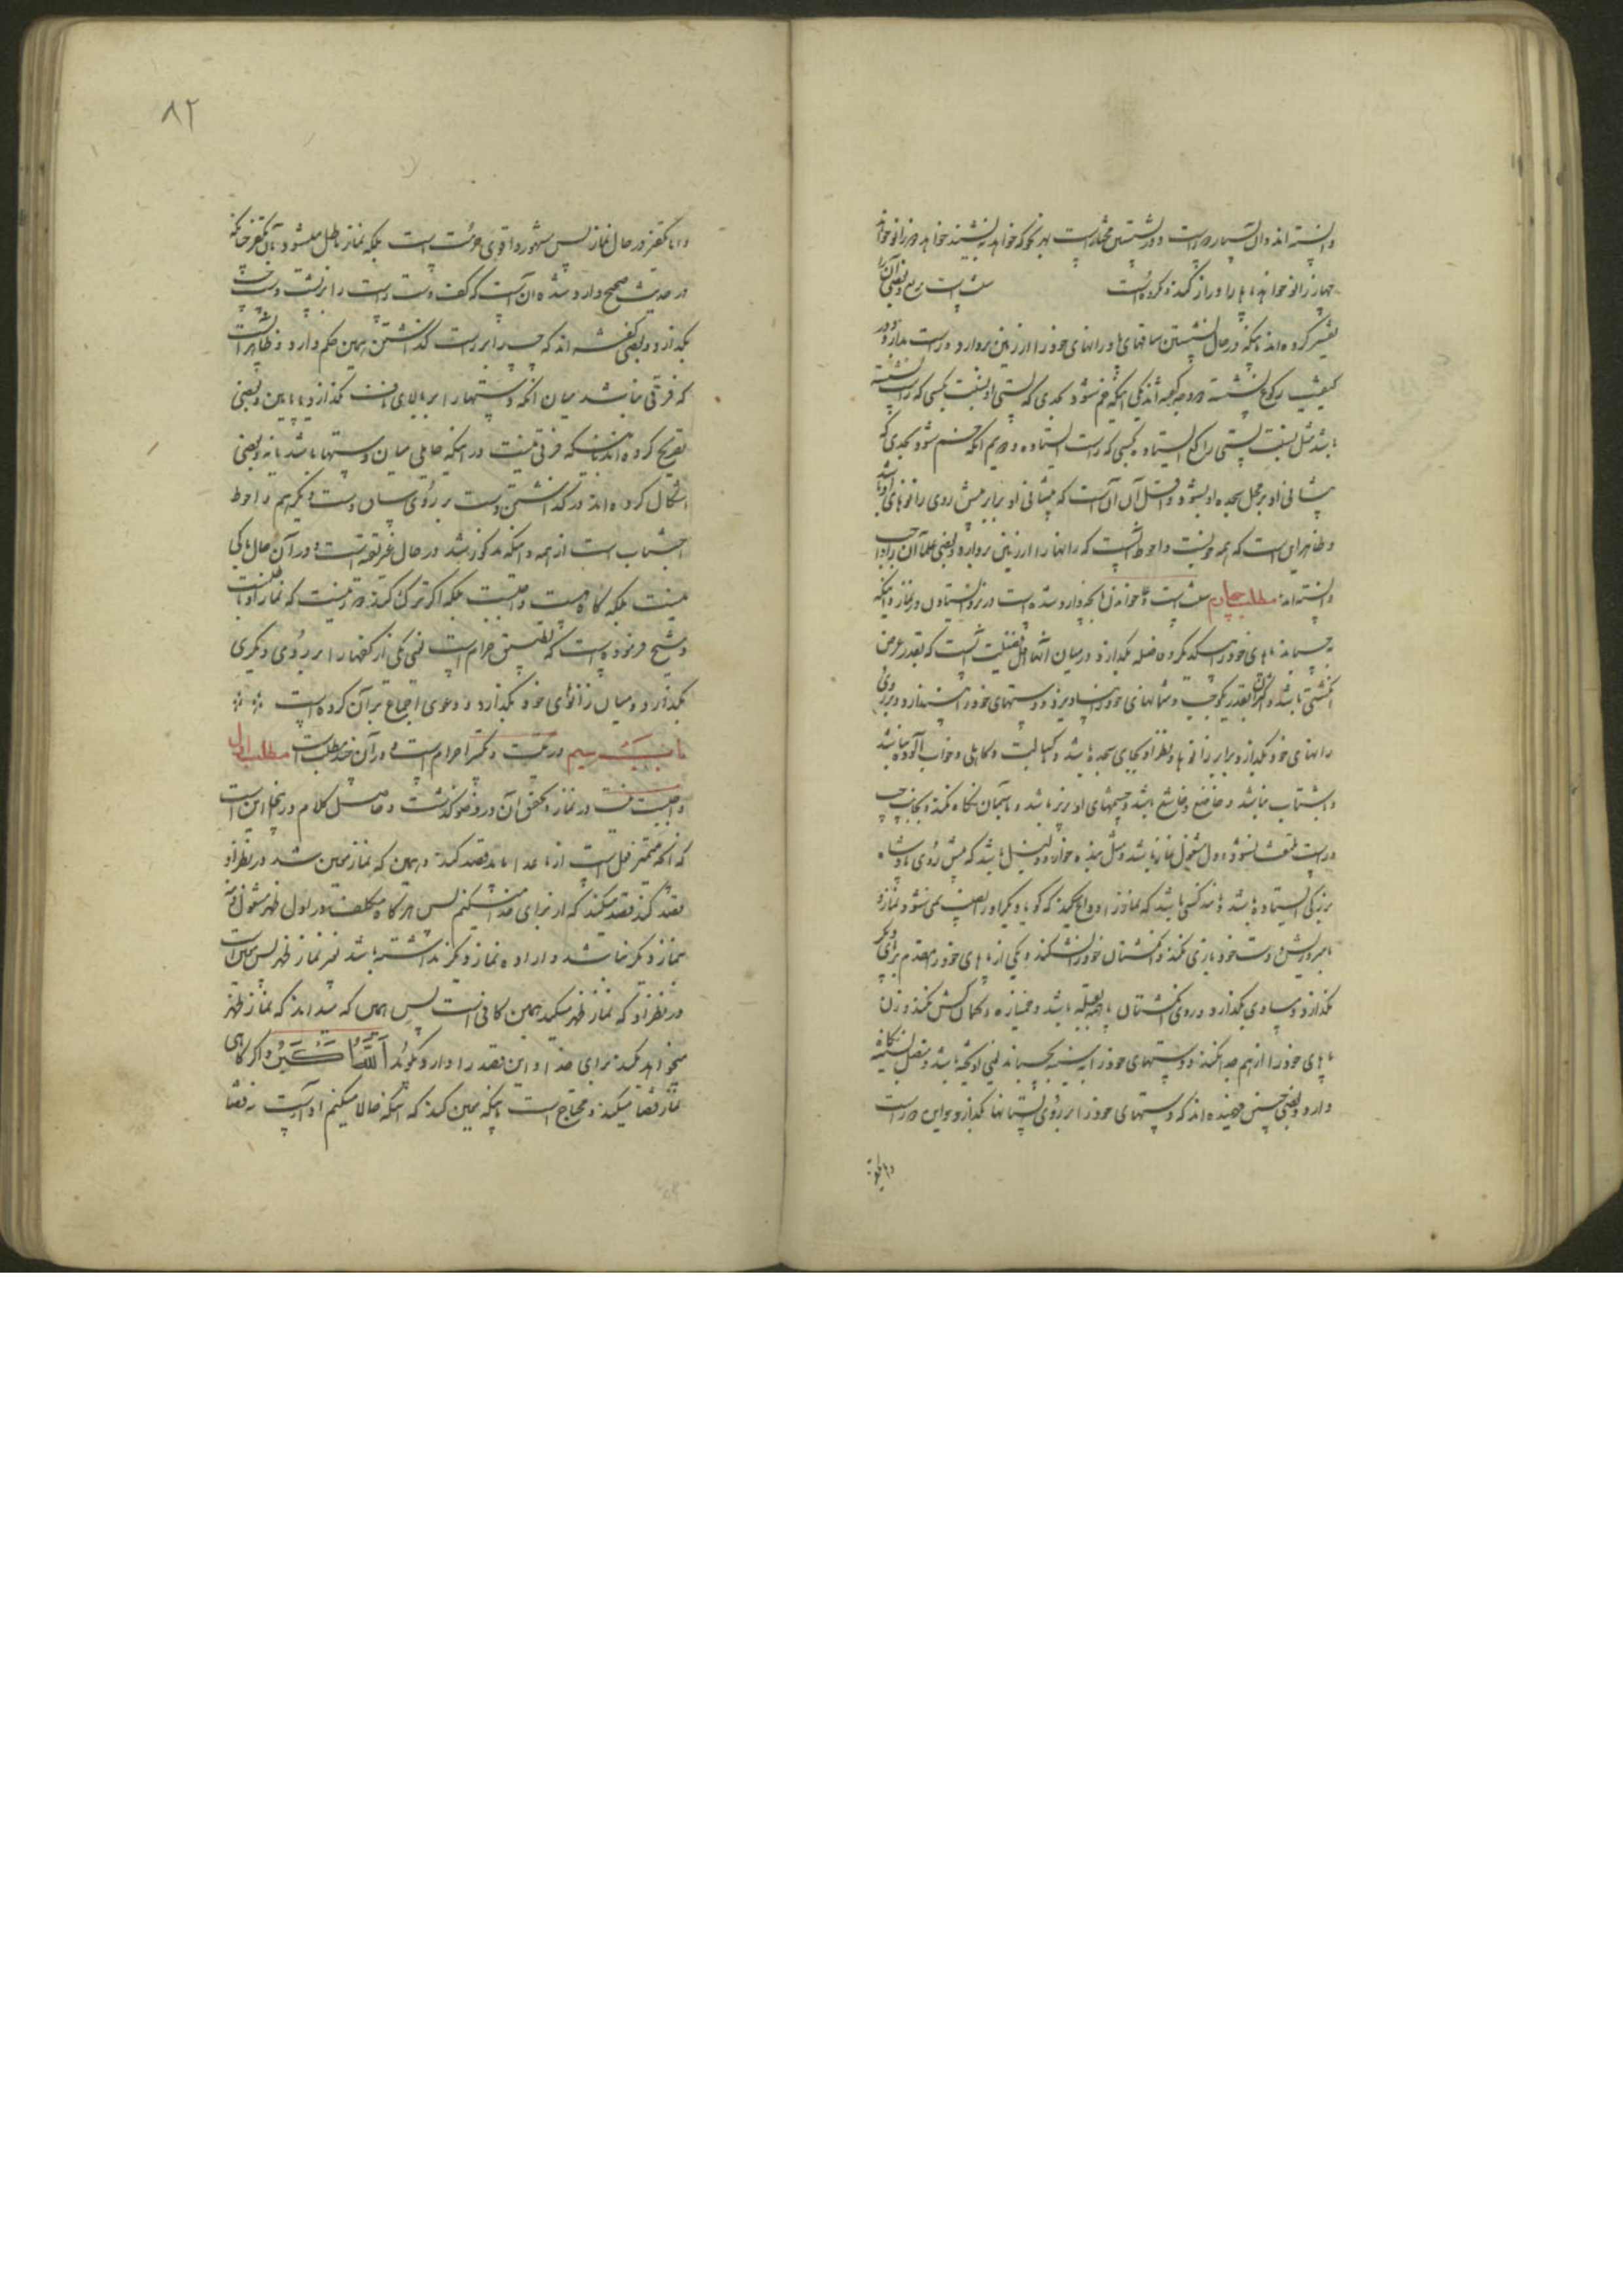 دانسته‌اند و آن بسیار است و در نشستن مختار است بهر نحو که خواهد بنشیند خواهد دو زانو خواهد
چهار زانو خواهد پاها را دراز کند و کرده است سنت است تربیع و بعضی آن را
تفسیر کرده‌اند باینکه در حال نشستن ساقهای پا و رانهای خود را از زمین بردارد و راست بدارد و در
کیفیت رکوع نشسته دو وجه گفته‌اند یکی اینکه خم شود بحدی که پستی او نسبت بکسی که راست نشسته
باشد مثل نسبت پستی راکع ایستاده بکسی که راست ایستاده و دویم انکه خم شود بحدی که
پیشانی او بر محل سجده او بشود و اقل آن آن است که پیشانی او برابر پیش روی زانوهای او باشد
و ظاهر این است که همه خوبست و احوط آنست که رانها را از زمین بردارد و بعضی علما آن را واجب
دانسته‌اند مطلب چهارم سنت است خواندن آنچه وارد شده است در نزد ایستادن در نماز و اینکه
نچسباند پاهای خود را بیکدیگر و فاصله بگذارد در میان آنها اقل فضیلت آنست که بقدر عرض
انگشتی باشد و اکثر آن بقدر یکوجبست و شانهای خود را بیاویزد و دستهای خود را بیندازد و بر روی
رانهای خود بگذارد برابر زانوها و نظر او بجای سجده باشد و کسالت و کاهلی و خواب آلوده نباشد
و بشتاب نباشد و خاضع و خاشع باشد و چشمهای او بزیر باشد و باسمان نگاه نکند و بجانب چپ
و راست ملتفت نشود و دل مشغول نماز باشد و مثل بنده خوار و ذلیل باشد که پیش روی پادشاه
بزرگی ایستاده باشد و مانند کسی باشد که نماز را وداع میکند که گویا دیگر او را نصیب نمی‌شود نماز و
با سر و ریش و دست خود بازی نکند و انگشتان خود را نشکند و یکی از پاهای خود را مقدم بر دیگری
نگذارد و مساوی بگذارد و روی انگشتان پا همه بقبله باشد و خمیازه و کمان کش نکند و زن
پاهای خود را از هم جدا نکند و دستهای خود را بسینه بچسباند یعنی آویخته باشد و متصل بسینه نگاه
دارد و بعضی چنین فهمیده‌اند که دستهای خود را بر روی پستانها بگذارد و این دور است
و اما تکفیر
۸۲
و اما تکفیر در حال نماز پس مشهور و اقوی حرمت است بلکه نماز باطل میشود بآن تکفیر چنانکه
در حدیث صحیح وارد شده آن است که کف دست راست را بر پشت دست چپ
بگذارد و بعضی گفته‌اند که چپ را بر راست گذاشتن همین حکم دارد و ظاهر آنست
که فرقی نباشد میان انکه دستها را بر بالای ناف گذارد یا پایین و بعضی
تصریح کرده‌اند باینکه فرقی نیست در اینکه حایلی میان دستها باشد یا نه و بعضی
اشکال کرده‌اند در گذاشتن دست بر روی ساق دست دیگر هم و احوط
اجتناب است از همه و اینکه مذکور شد در حال غیر تقیه است و در آن حال باکی
نیست بلکه گاه هست واجبست بلکه اگر ترک کند دور نیست که نماز او باطلست
و شیخ فرموده است که تطبیق حرام است یعنی یکی از کفها را بر روی دیگری
بگذارد و میان زانوهای خود بگذارد و دعوی اجماع بر آن کرده است
باب سیم در نیت و تکبیر احرام است و در آن چند مطلب است مطلب اول
واجبست نیت در نماز و تحقیق آن در وضو گذشت و حاصل کلام در اینجا این است
که آنکه ممیز فعل است از ماعدا باید قصد کند و همین که نماز معین شد در نظر او
قصد کند قصد میکند که از برای خدا میکنم پس هرگاه مکلف در اول ظهر مشغول ذمه
بنماز دیگر نباشد و اراده نماز دیگر نداشته باشد غیر نماز ظهر پس همین است
در نظر او که نماز ظهر میکند همین کافی است پس همین که میداند که نماز ظهر
میخواهد بکند برای خدا و این قصد را دارد و بگوید اَللّهُ اَکْبَرُ و اگر گاهی
نماز قضا میکند و محتاج است باینکه معین کند که اینکه حالا میکنم ادا است نه قضا